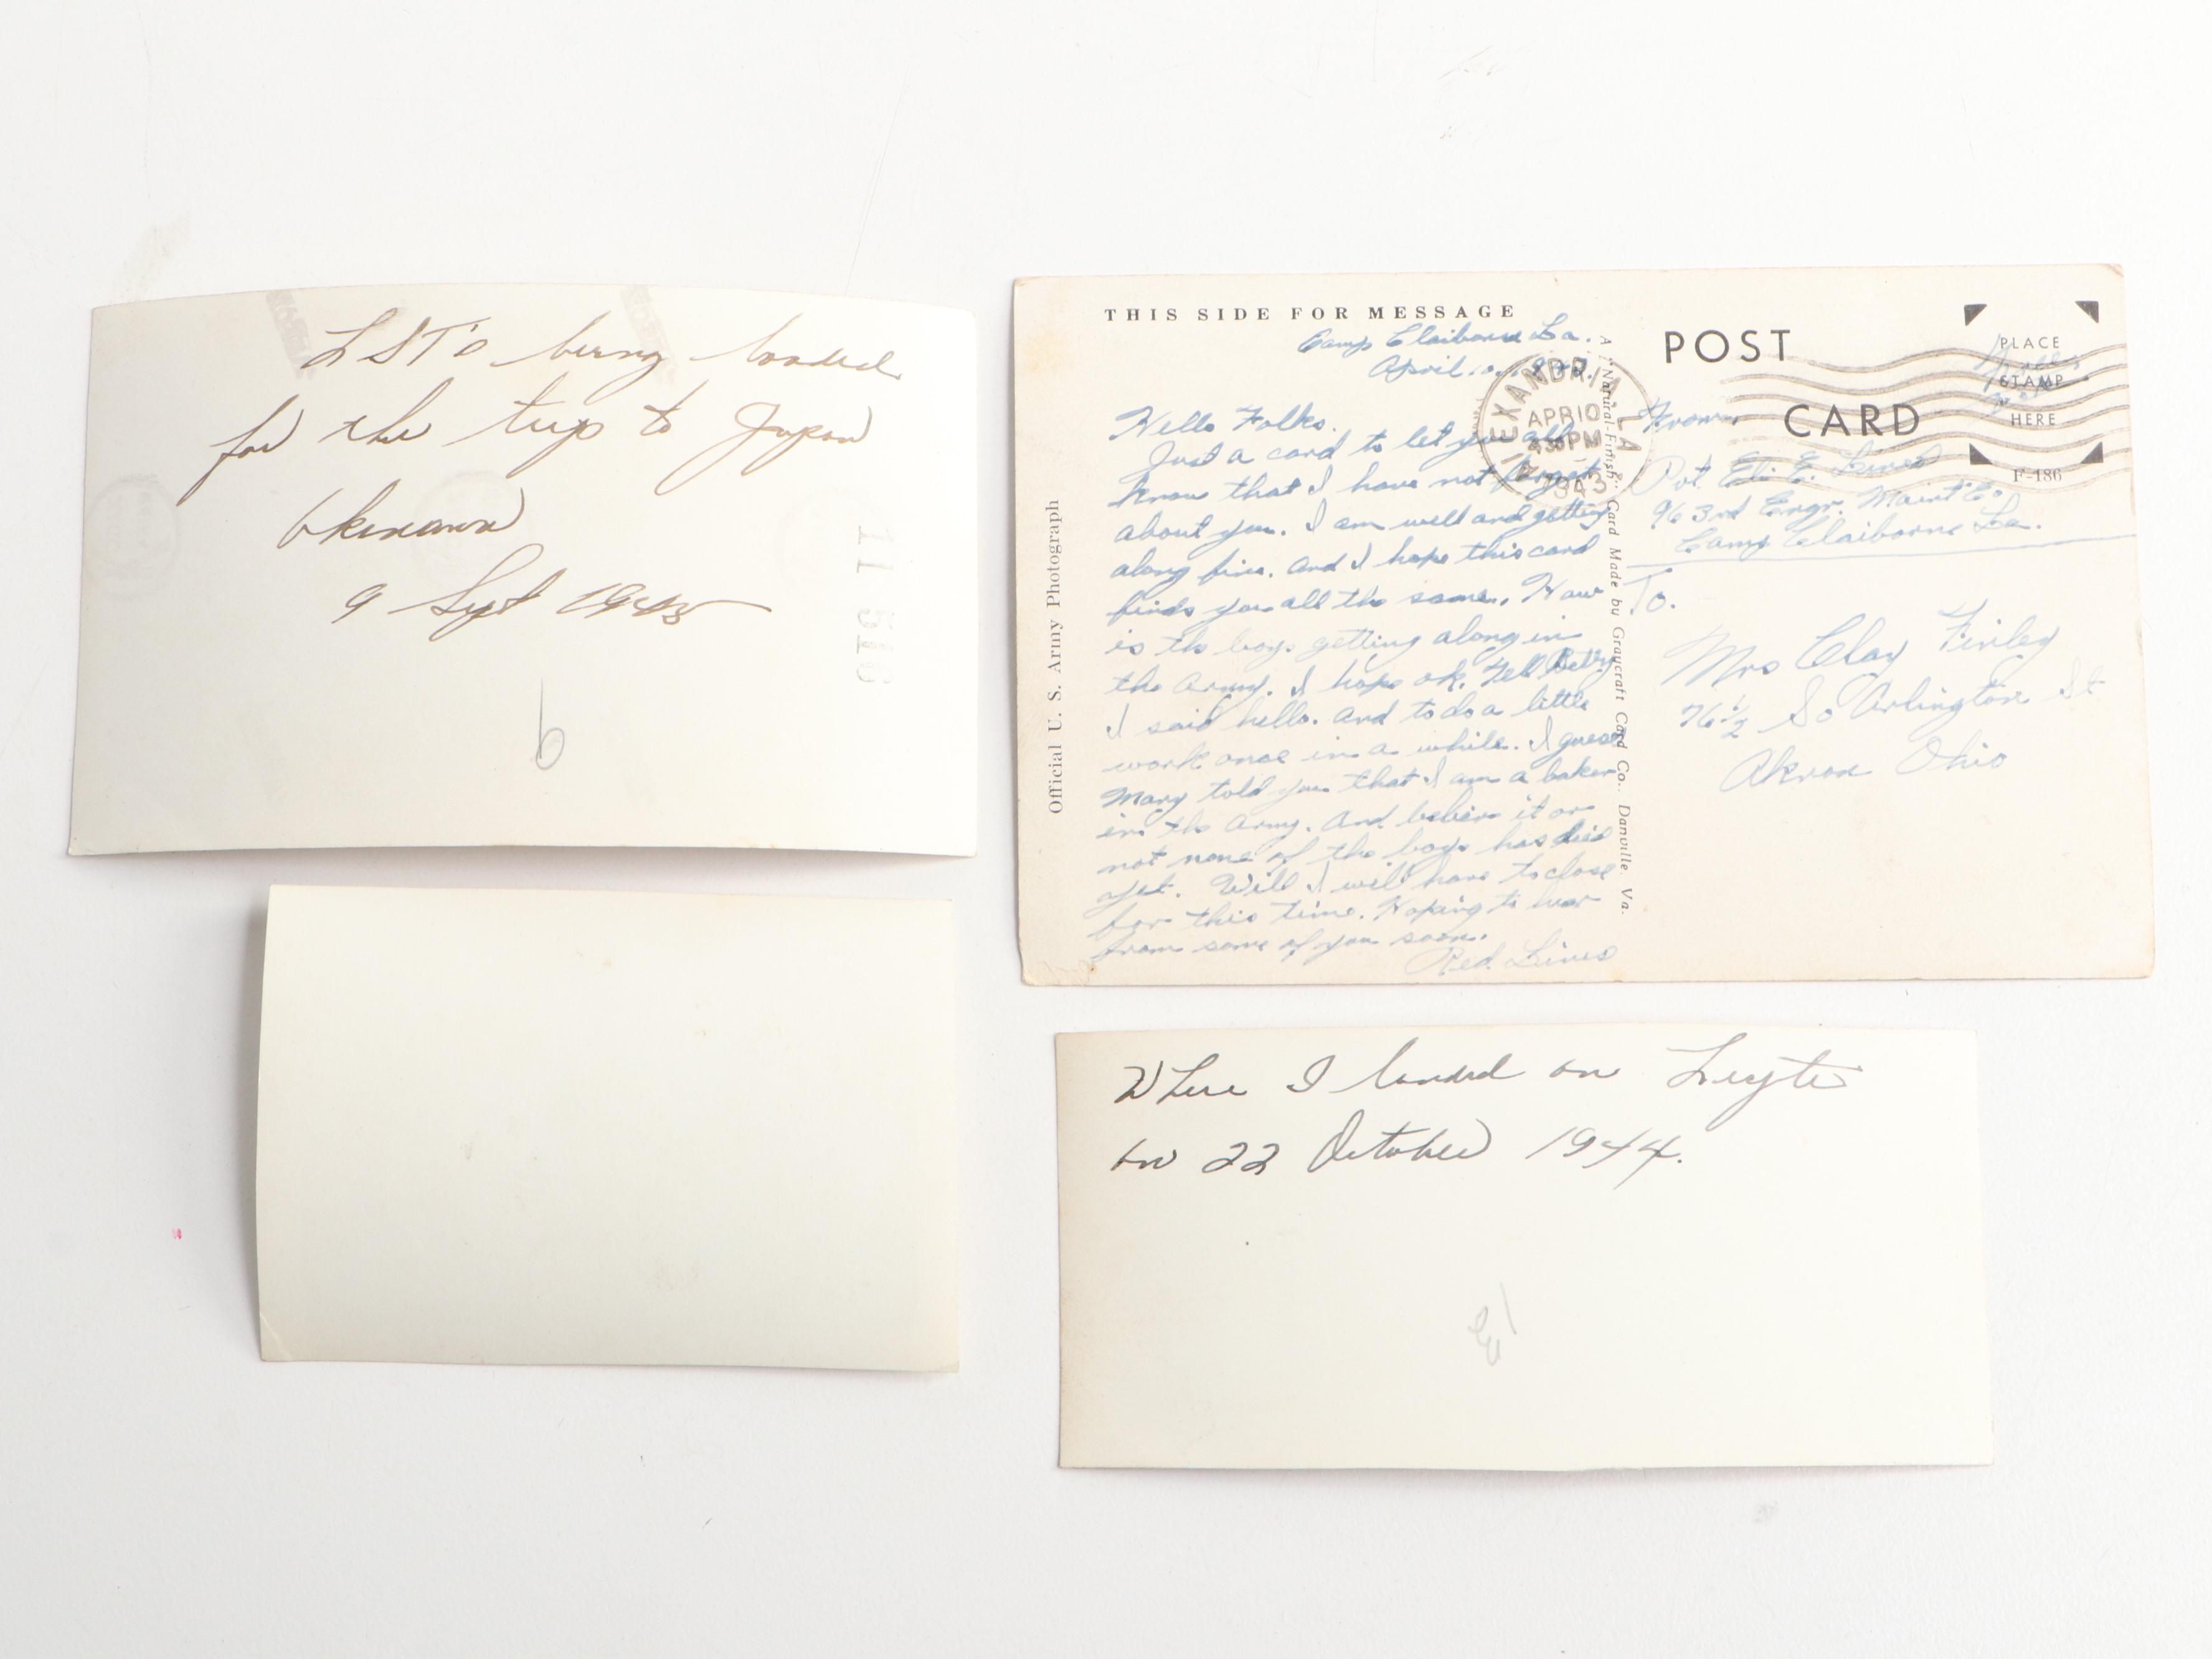 LST's being loaded
for the trip to Japan
Okinawa
9 Sept 1945
11 516
9
THIS SIDE FOR MESSAGE
Camp Claiborne La.
April 10, 1943.
Hello Folks.
Just a card to let you all
know that I have not forget
about you. I am well and getting
along fine. And I hope this card
finds you all the same. How
is the boys getting along in
the Army. I hope ok. Tell Betty
I said hello. And to do a little
work once in a while. I guess
Mary told you that I am a baker
in the Army. And believe it or
not none of the boys has died
yet. Well I will have to close
for this time. Hoping to hear
from some of you soon.
Red. Lines
Official U. S. Army Photograph
A "Natural-Finish" Card Made by Graycraft Card Co., Danville, Va.
ALEXANDRIA LA
APR 10
4 30 PM
1943
POST CARD
PLACE
STAMP
HERE
F-186
From
Pvt. Eli E. Lines
963rd Engr. Maint Co
Camp Claiborne La.
To.
Mrs Clay Finley
76½ So Arlington St
Akron Ohio
Where I landed on Leyte
on 22 October 1944.